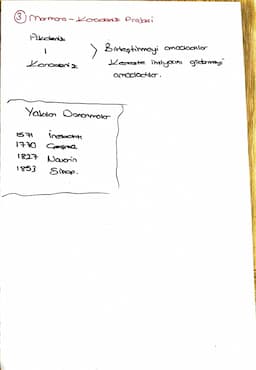 ③ Marmara - Karadeniz Projesi
Akdeniz
|
Karadeniz
> Birleştirmeyi amaçlamışlar
Kereste ihtiyacını gidermeyi
amaçladılar.
Yakılan Donanmalar
1571 İnebahtı
1770 Çeşme
1827 Navarin
1853 Sinop.